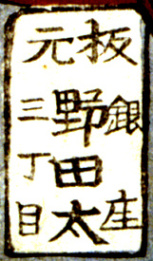 板元
銀座
野田太
三丁目